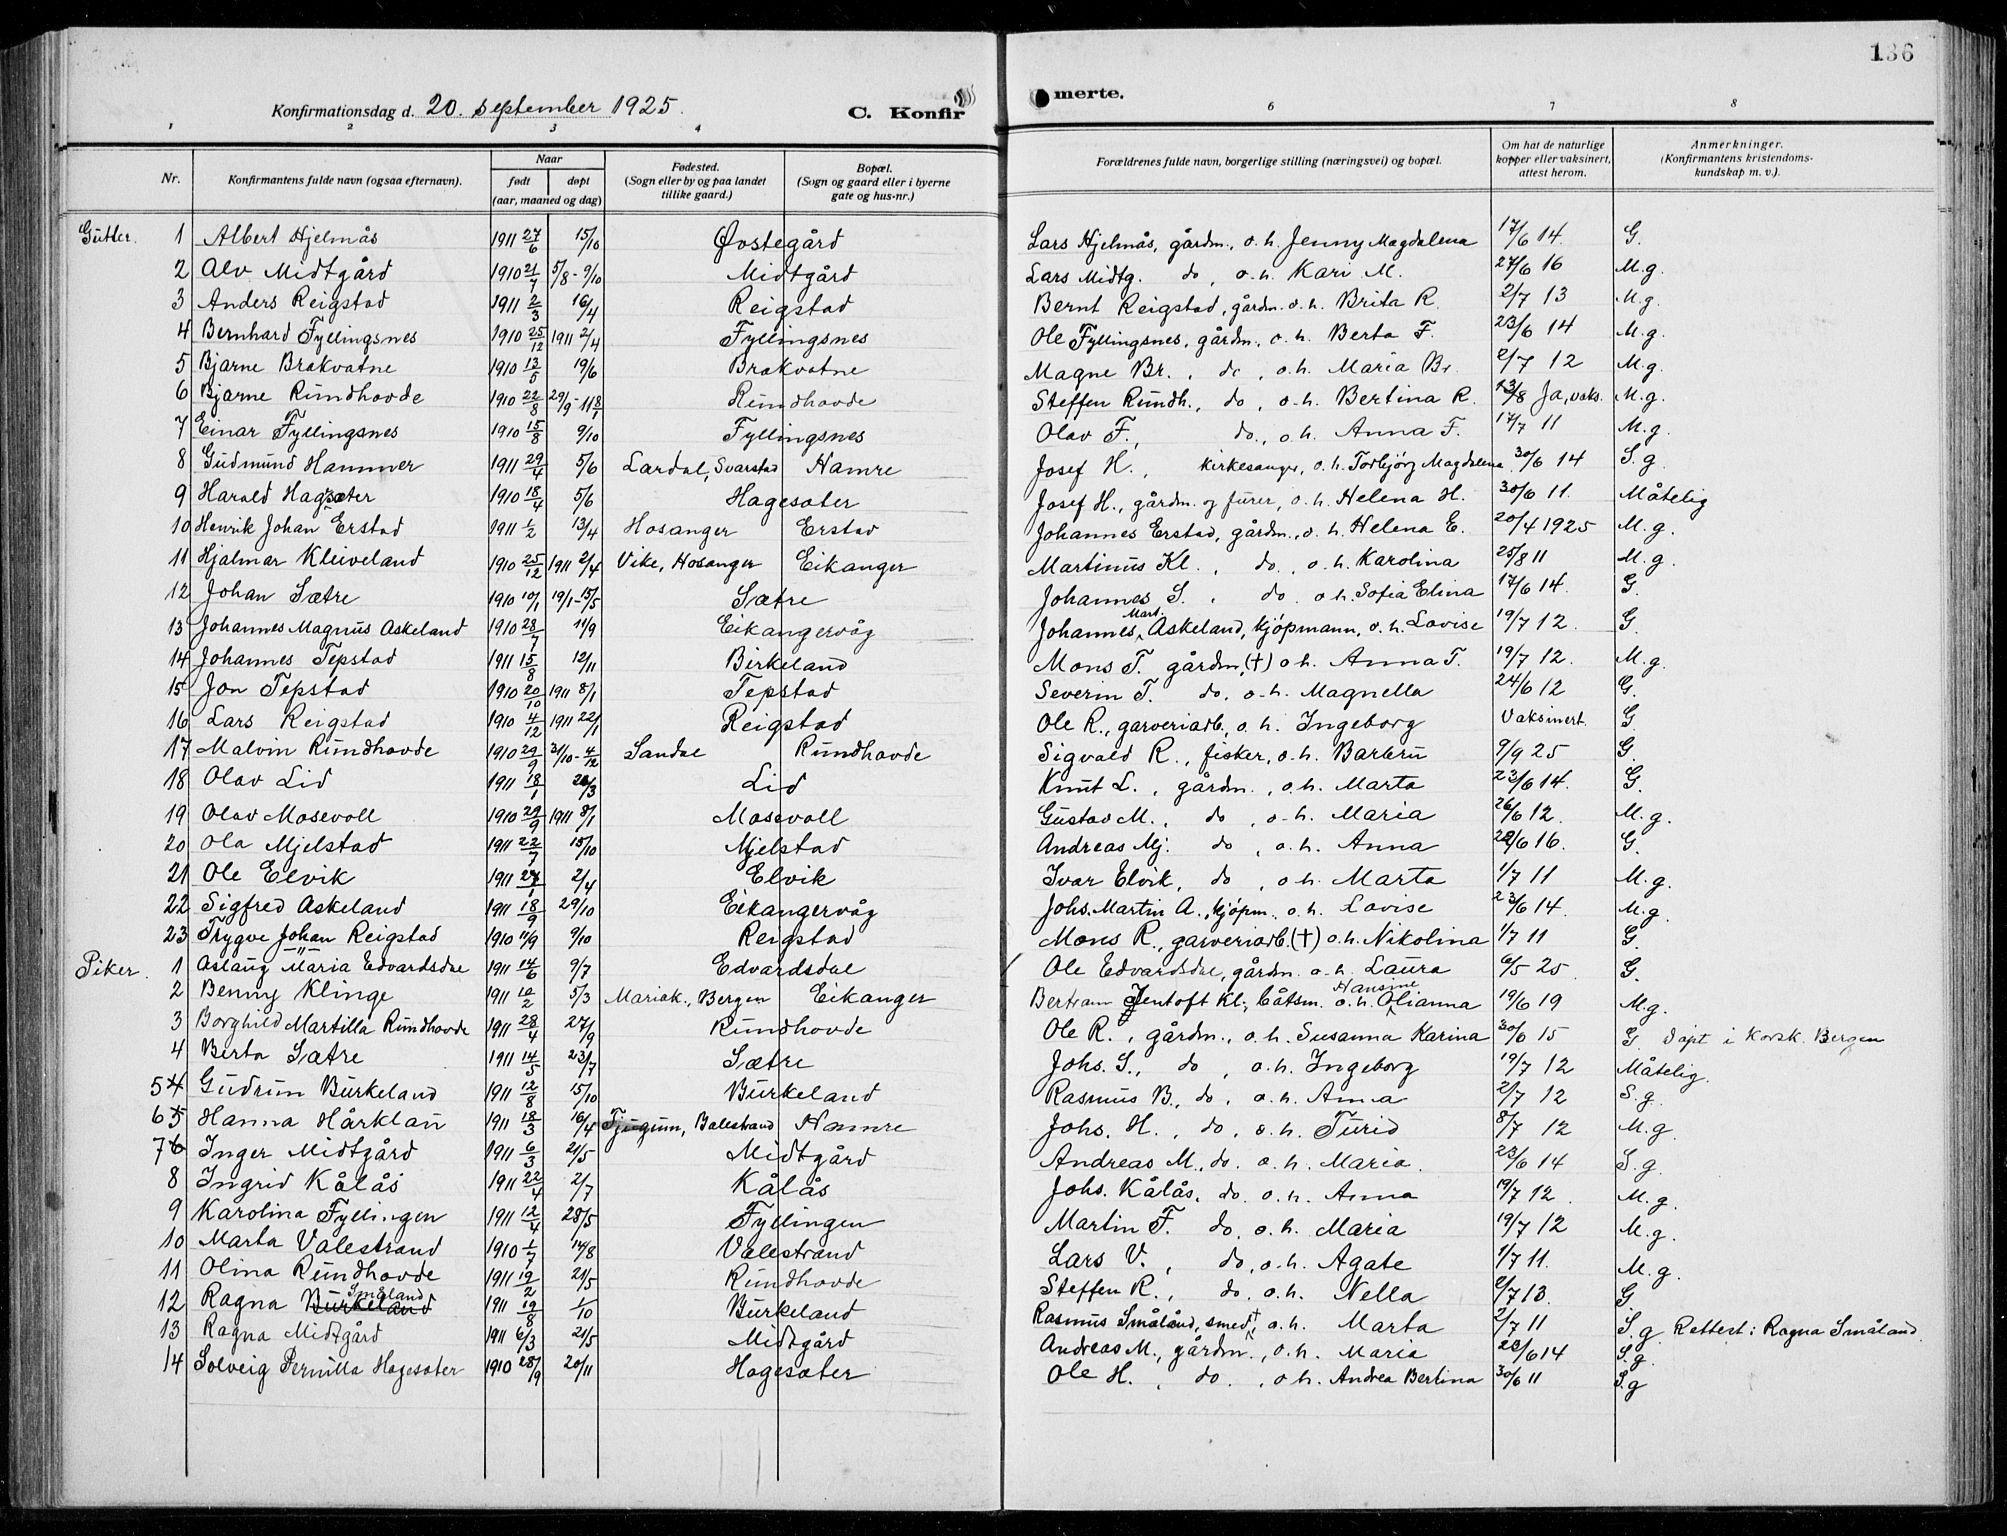 136
Konfirmationsdag d. 20. september 1925.
C. Konfir merte.
1 2 3 4 6 7 8
Nr.
Konfirmantens fulde navn (ogsaa efternavn).
Naar
født døpt
(aar, maaned og dag)
Fødested. (Sogn eller by og paa landet tillike gaard.)
Bopæl. (Sogn og gaard eller i byerne gate og hus-nr.)
Forældrenes fulde navn, borgerlige stilling (næringsvei) og bopæl.
Om hat de naturlige kopper eller vaksinert, attest herom.
Anmerkninger. (Konfirmantens kristendomskundskap m. v.).
Gutter. 1 Albert Hjelmås 1911 27/6 15/10 Øostegård Lars Hjelmås, gårdm., o.h. Jenny Magdalena 17/6 14. G.
2 Alv Midtgård 1910 21/7 5/8-9/10 Midtgård Lars Midtg. do, o.h. Kari M. 27/6 16 M.g.
3 Anders Reigstad 1911 2/3 16/4 Reigstad Bernt Reigstad, gårdm. o.h. Brita R. 2/7 13 M.g.
4 Bernhard Fyllingsnes 1910 25/12 1911 2/4 Fyllingsnes Ole Fyllingsnes, gårdm., o.h. Berta F. 23/6 14 M.g.
5 Bjarne Brakvatne 1910 13/5 19/6 Brakvatne Magne Br., do, o.h. Maria Br. 2/7 12 M.g.
6 Bjarne Rundhovde 1910 22/8 29/9-11 8/1 Rundhovde Steffen Rundh., do, o.h. Bertina R. 13/8 Ja, vaks. M.g.
7 Einar Fyllingsnes 1910 15/8 9/10 Fyllingsnes Olav F., do., o.h. Anna F. 17/7 11 M.g.
8 Gudmund Hammer 1911 29/4 5/6 Lardal, Svarstad Hamre Josef H., kirkesanger, o.h. Torbjörg Magdalena 30/6 14 S.g.
9 Harald Hagesæter 1910 18/4 5/6 Hagesæter Josef H., gårdm. og furer, o.h. Helena H. 30/6 11. Måtelig
10 Henrik Johan Erstad 1911 1/2 13/4 Hosanger Erstad Johannes Erstad, gårdm., o.h. Helena E. 20/4 1925 M.g.
11 Hjalmar Kleiveland 1910 25/12 1911 2/4 Vike, Hosanger Eikanger Martinus Kl., do., o.h. Karolina 25/8 11 M.g.
12 Johan Sætre 1910 10/1 19/1-15/5 Sætre Johannes S., do. o.h. Sofia Elina 17/6 14. G.
13 Johannes Magnus Askeland 1910 28/7 11/9 Eikangervåg Johannes Mart. Askeland, kjøpmann, o.h. Lovise 19/7 12. G.
14 Johannes Tepstad 1911 15/8 12/11 Birkeland Mons T. gårdm, (†) o.h. Anna T. 19/7 12. M.g.
15 Jon Tepstad 1910 20/10 1911 8/1 Tepstad Severin T. do, o.h. Magnella 24/6 12 G.
16 Lars Reigstad 1910 4/12 1911 22/1 Reigstad Ole R., garveriarb., o.h. Ingeborg Vaksinert. G.
17 Malvin Rundhovde 1910 29/9 31/10-4/12 Sandal Rundhovde Sigvald R., fisker, o.h. Barbru 9/9 25 G.
18 Olav Lid 1911 18/1 26/3 Lid Knut L., gårdm., o.h. Marta 23/6 14. G.
19 Olav Mosevoll 1910 29/9 1911 8/1 Mosevoll Gustav M., do, o.h. Maria 26/6 12. M.g.
20 Ola Mjelstad 1911 22/7 15/10 Mjelstad Andreas Mj. do, o.h. Anna 26/6 16. G.
21 Ole Elvik 1911 27/1 2/4 Elvik Ivar Elvik, do, o.h. Marta 1/7 11 M.g.
22 Sigfred Askeland 1911 18/9 29/10 Eikangervåg Johs. Martin A., kjöpm., o.h. Lovise 23/6 14. M.g.
23 Trygve Johan Reigstad 1910 11/9 9/10 Reigstad Mons R., garveriarb. (†) o.h. Nikolina 1/7 11 G.
Piker. 1 Aslaug Maria Edvardsdal 1911 14/6 9/7 Edvardsdal Ole Edvardsdal, gårdm. o.h. Laura 6/5 25. G.
2 Benny Klinge 1911 10/2 5/3 Mariak., Bergen Eikanger Bertram Jentoft Kl., båtsm. o.h. Hansine Olianna 19/6 19 M.g.
3 Borghild Martilla Rundhovde 1911 28/4 27/9 Rundhovde Ole R., gårdm., o.h. Susanna Karina 30/6 15 G. Døpt i Korsk. Bergen
4 Berta Sætre 1911 14/5 23/7 Sætre Johs. S., do, o.h. Ingeborg 19/7 12 Måtelig.
5 4 Gudrun Burkeland 1911 12/8 15/10 Burkeland Rasmus B., do, o.h. Anna 2/7 12 S.g.
6 5 Hanna Hårklau 1911 18/3 16/4 Tjugum, Balestrand Hamre Johs. H., do, o.h. Turid 8/7 12 M.g.
7 6 Inger Midtgård 1911 6/3 21/5 Midtgård Andreas M., do. o.h. Maria. 23/6 14 S.g.
8 Ingrid Kålås 1911 22/4 2/7 Kålås Johs. Kålås, do. o.h. Anna 19/7 12. M.g.
9 Karolina Fyllingen 1911 12/4 28/5 Fyllingen Martin F. do, o.h. Maria 19/7 12 M.g.
10 Marta Valestrand 1910 1/7 14/8 Valestrand Lars V., do, o.h. Agate 1/7 11. M.g.
11 Olina Rundhovde 1911 19/2 21/5 Rundhovde Steffen R., do. o.h. Nella 2/7 13. G
12 Ragna Burkeland Småland 1911 19/8 1/10 Burkeland Rasmus Småland, smed †, o.h. Marta 2/7 11 S.g. Rettert: Ragna Småland.
13 Ragna Midtgård 1911 6/3 21/5 Midtgård Andreas M., gårdm., o.h. Maria 23/6 14 S.g.
14 Solveig Pernilla Hagesæter 1910 28/9 20/11 Hagesæter Ole H., do., o.h. Andrea Bertina 30/6 11 S.g